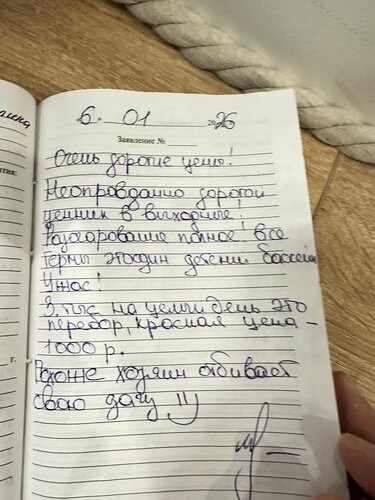 6. 01 2026
Заявление №
Очень дорогие цены!
Неоправданно дорогой
ценник в выходные!
Разочарование полное! Все
термы это один детский бассейн
Ужас!
3 тыс на целый день это
перебор, красная цена –
1000 р.
Похоже хозяин отбивает
свою дачу !!)
г.